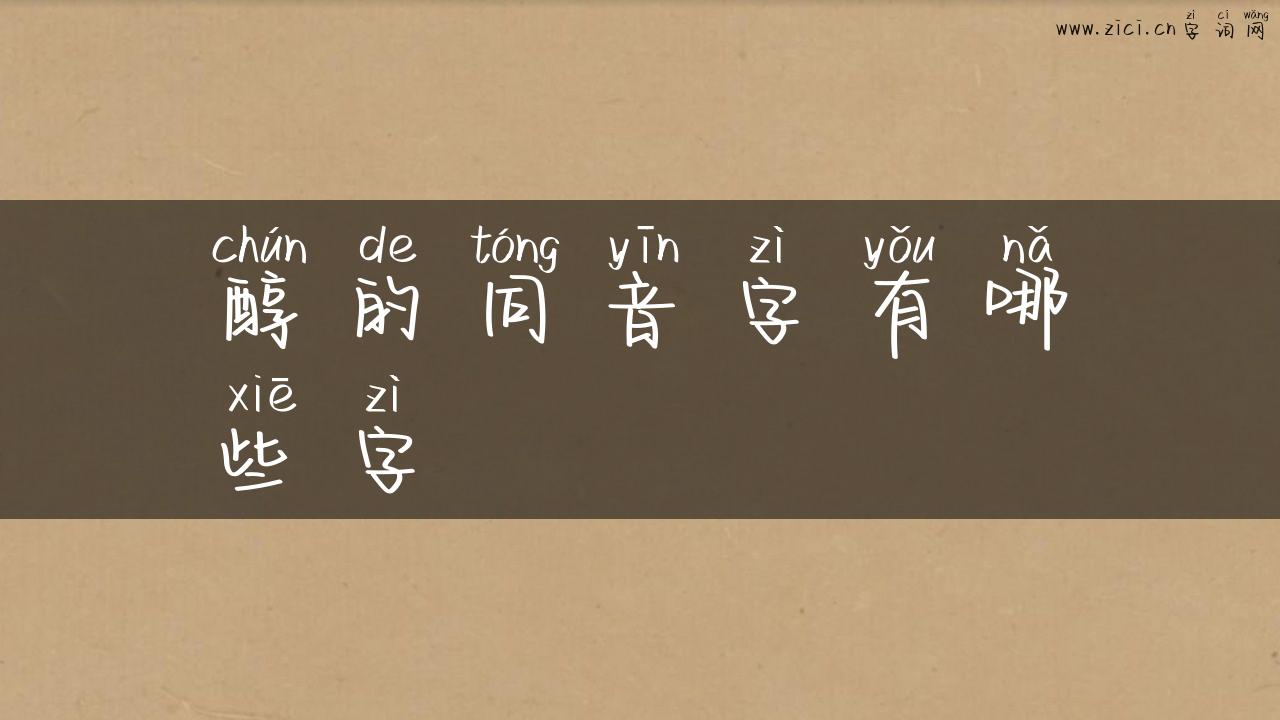 zì cí wǎng
www.zici.cn 字 词 网
chún de tóng yīn zì yǒu nǎ
醇 的 同 音 字 有 哪
xiē zì
些 字